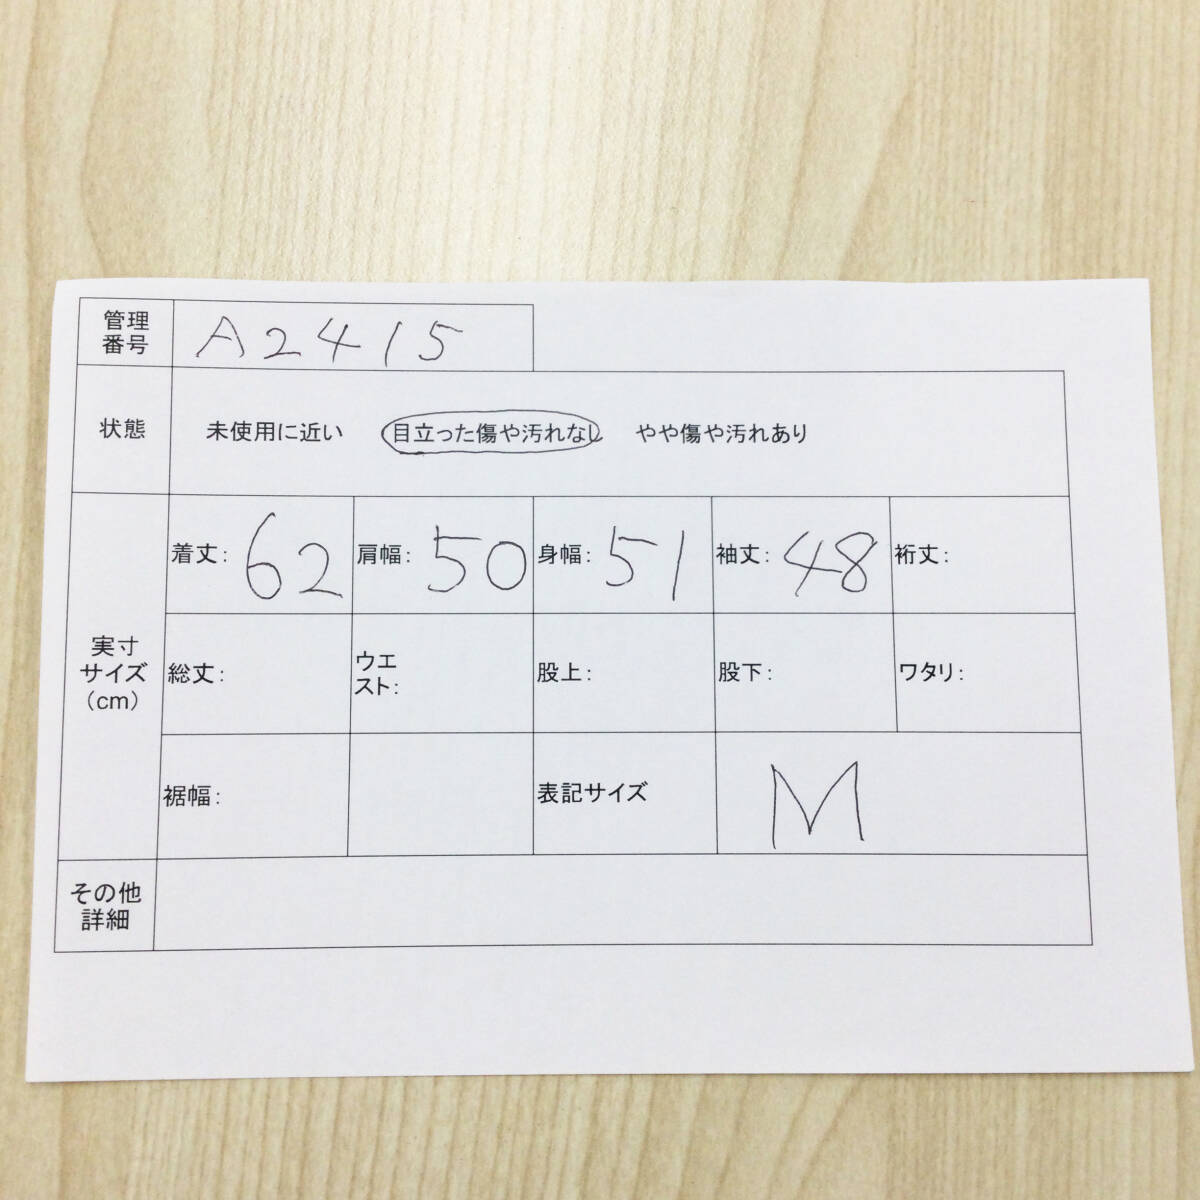 管理
番号
A2415
状態
未使用に近い 目立った傷や汚れなし やや傷や汚れあり
実寸
サイズ
(cm)
着丈: 62 肩幅: 50 身幅: 51 袖丈: 48 裄丈:
総丈: ウエ
スト: 股上: 股下: ワタリ:
裾幅: 表記サイズ M
その他
詳細